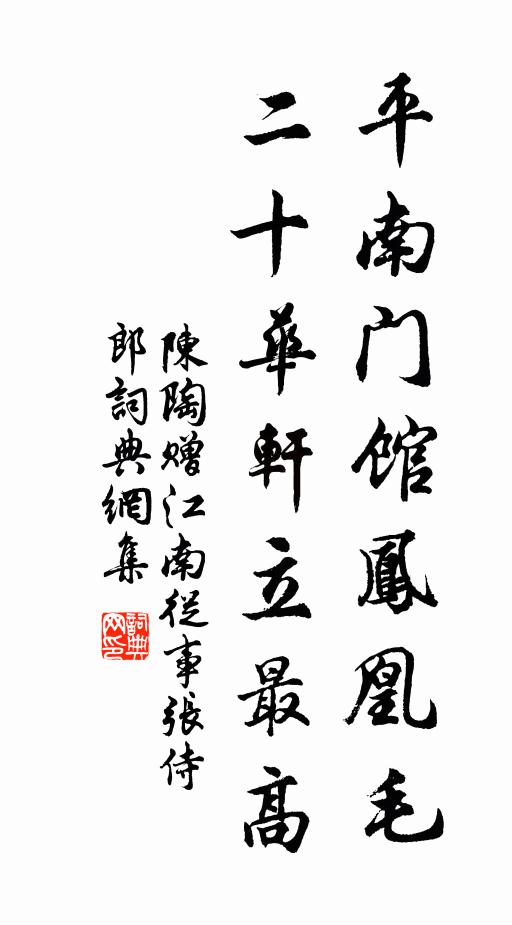 平南門館鳳凰毛
二十華軒立最高
陳陶贈江南從事張侍
郎詞典網集
詞典
网印